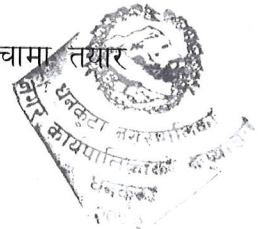 चामा तयार
धनकुटा नगरपालिका
नगर कार्यपालिकाको
धनकुटा